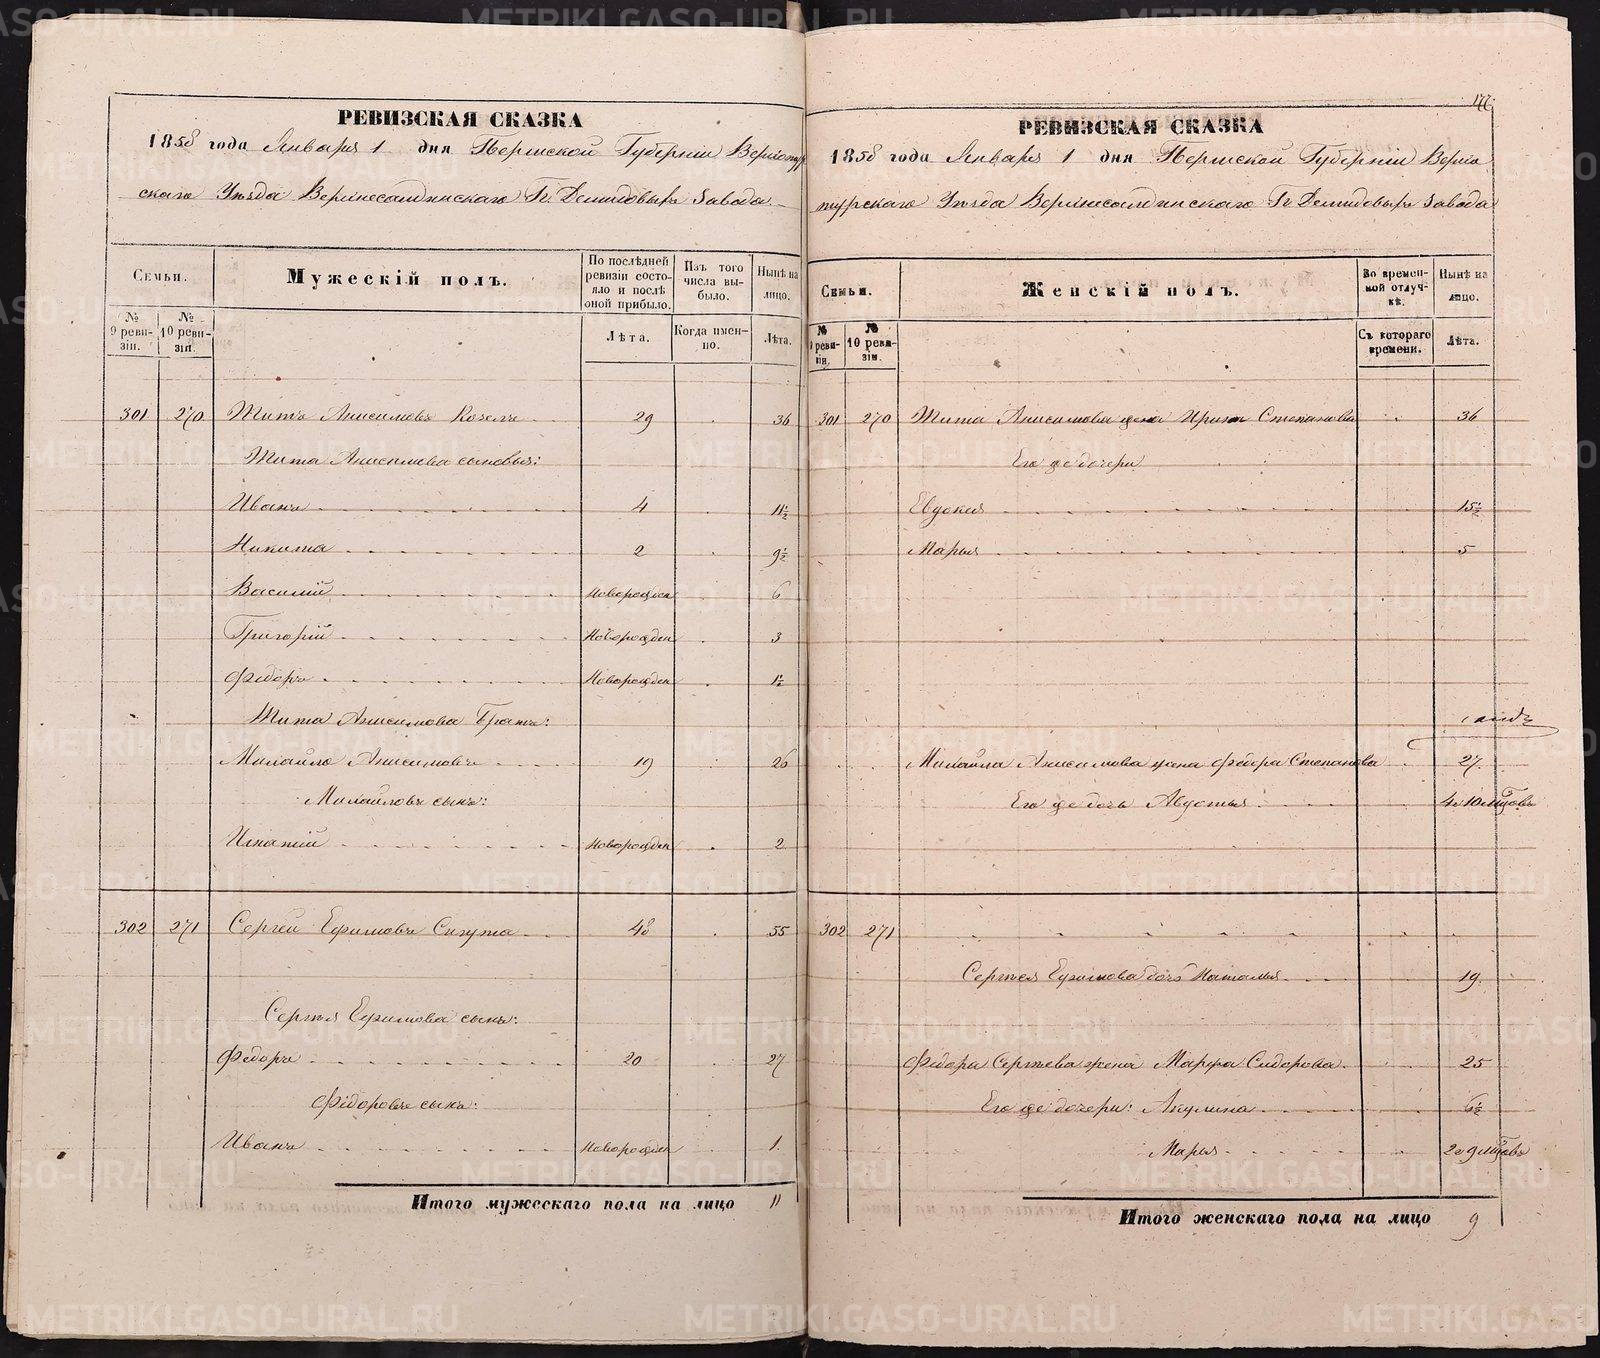 РЕВИЗСКАЯ СКАЗКА
1858 года Января 1 дня Пермской Губерніи Верхотур
скаго Уѣзда Верхнесалдинскаго Гг. Демидовыхъ Завода
Семьи.
Мужескій полъ.
По послѣдней ревизіи состояло и послѣ оной прибыло.
Изъ того числа выбыло.
Нынѣ на лицо.
№ 9 ревизіи.
№ 10 ревизіи.
Лѣта.
Когда именно.
Лѣта.
301 270 Титъ Анисимовъ Козелъ 29 36
Тита Анисимова сыновья:
Иванъ 4 11½
Никита 2 9½
Василій Новорожден 6
Григорій Новорожден 3
Федоръ Новорожден 1½
Тита Анисимова Братъ:
Михайло Анисимовъ 19 26
Михайловъ сынъ:
Игнатій Новорожден 2
302 271 Сергей Ефимовъ Сигута 48 55
Сергѣя Ефимова сынъ:
Федоръ 20 27
Федоровъ сынъ:
Иванъ Новорожден 1
Итого мужескаго пола на лицо 11
177
РЕВИЗСКАЯ СКАЗКА
1858 года Января 1 дня Пермской Губерніи Верхо
турскаго Уѣзда Верхнесалдинскаго Гг. Демидовыхъ Завода
Семьи.
Женскій полъ.
Во временной отлучкѣ.
Нынѣ на лицо.
№ 9 ревизіи.
№ 10 ревизіи.
Съ котораго времени.
Лѣта.
301 270 Тита Анисимова жена Ирина Степанова 36
Его же дочери
Евдокия 15½
Марья 5
Михайла Анисимова жена Федора Степанова 27
Его же дочь Авдотья 4 и 10 мцовъ
302 271
Сергѣя Ефимова дочь Наталья 19
Федора Сергѣева жена Марфа Сидорова 25
Его же дочери: Акулина 6½
Марья 2 и 9 мцовъ
Итого женскаго пола на лицо 9
METRIKI.GASO-URAL.RU